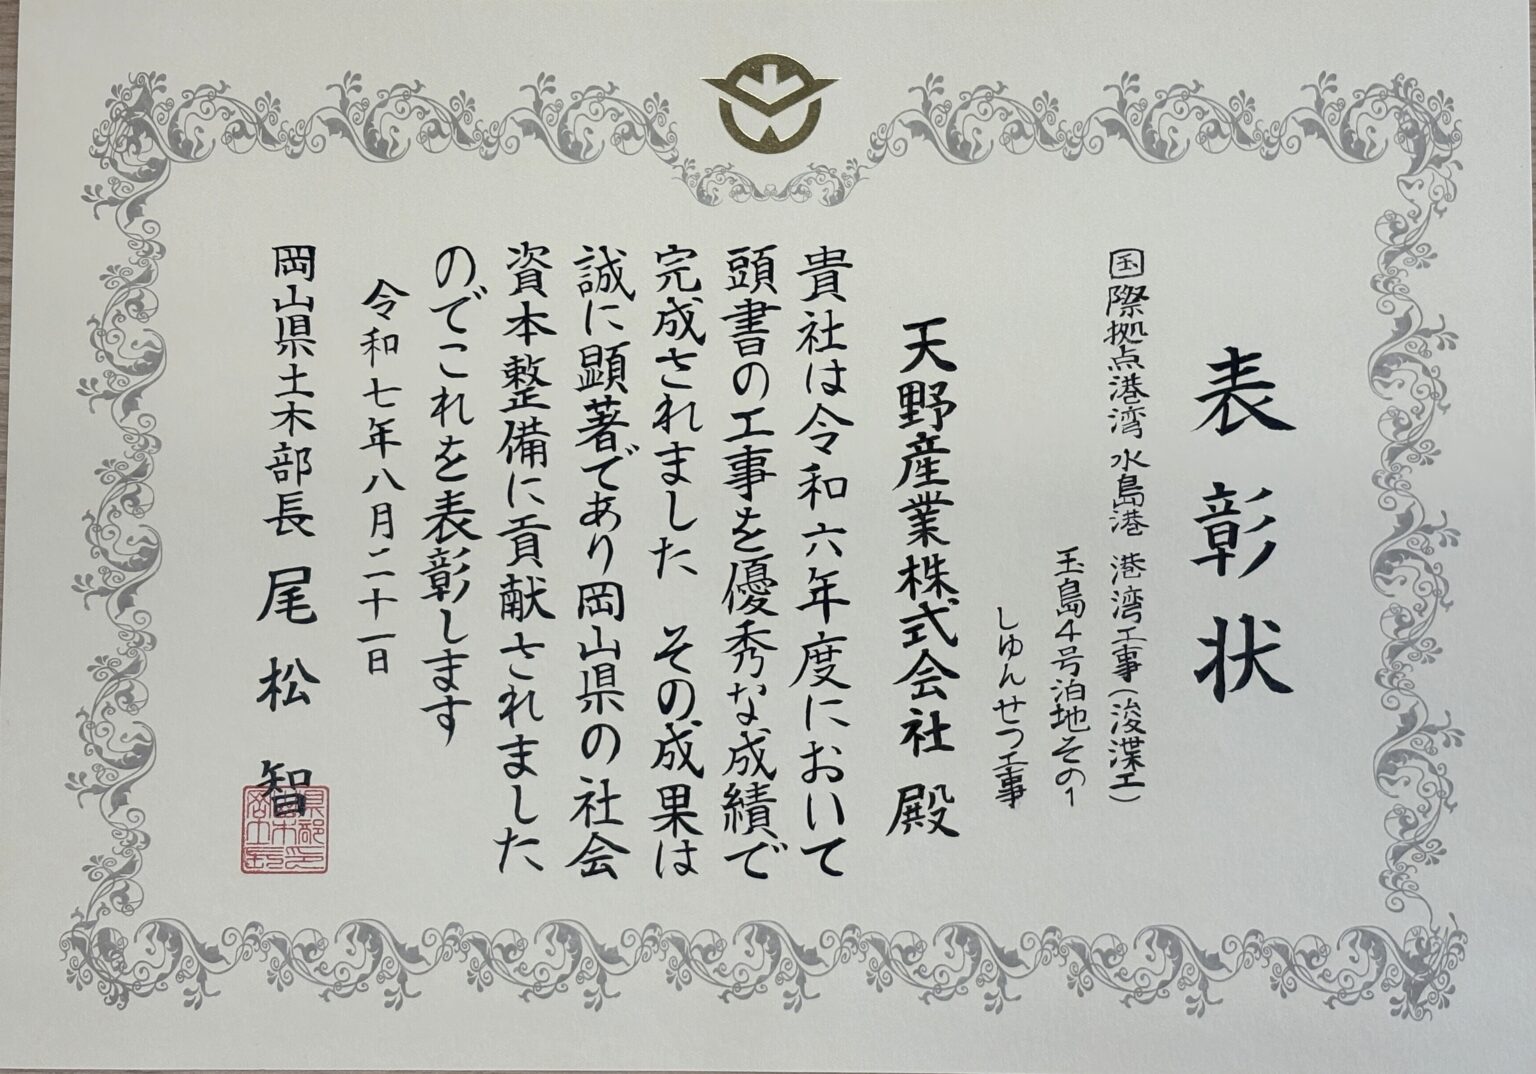 表彰状
国際拠点港湾 水島港 港湾工事(浚渫工)
玉島4号泊地その1
しゅんせつ工事
天野産業株式会社 殿
貴社は令和六年度において
頭書の工事を優秀な成績で
完成されました その成果は
誠に顕著であり岡山県の社会
資本整備に貢献されました
のでこれを表彰します
令和七年八月二十一日
岡山県土木部長 尾松智